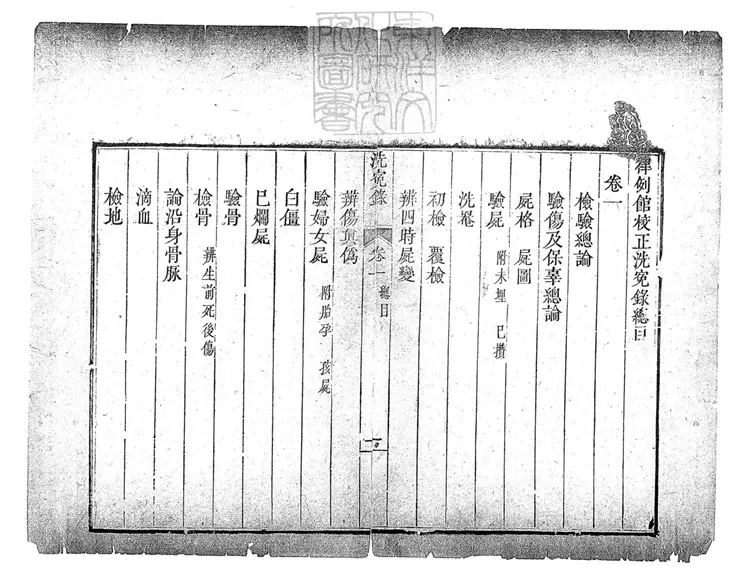 律例館校正洗冤錄總目
卷一
檢驗總論
驗傷及保辜總論
屍格 屍圖
驗屍 附未埋 已攢
洗罨
初檢 覆檢
辨四時屍變
洗冤錄 卷一 總目 一
辨傷真偽
驗婦女屍 附胎孕 孩屍
白僵
已爛屍
驗骨
檢骨 辨生前死後傷
論沿身骨脉
滴血
檢地